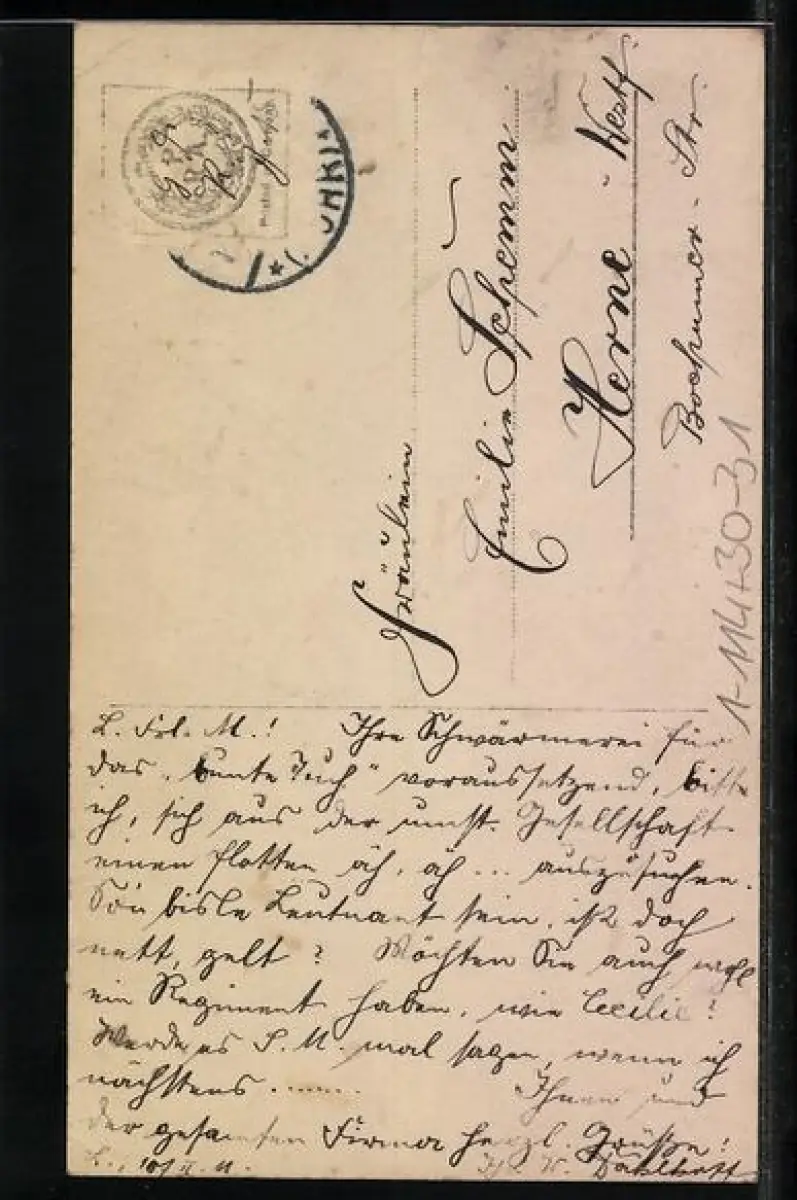 Fräulein
Emilie Schemm
Herne - Westf.
Bochumer - Str.
L. Frl. M.! Ihre Schwärmerei für
das "bunte Tuch" voraussetzend, bitte
ich, sich aus der umst. Gesellschaft
einen flotten äh, äh ... auszusuchen.
So'n bisle Leutnant sein, ist doch
nett, gelt? Möchten Sie auch wohl
ein Regiment haben, wie Cecilie?
Werde es S. M. mal sagen, wenn ich
nächstens ........ Ihnen und
der gesamten Firma herzl. Grüsse!
L., 10/II. 11.
1-114+30-31